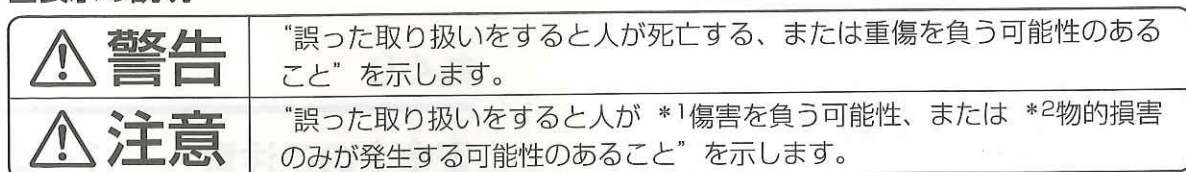 ⚠警告
“誤った取り扱いをすると人が死亡する、または重傷を負う可能性のある
こと”を示します。
⚠注意
“誤った取り扱いをすると人が *1傷害を負う可能性、または *2物的損害
のみが発生する可能性のあること”を示します。